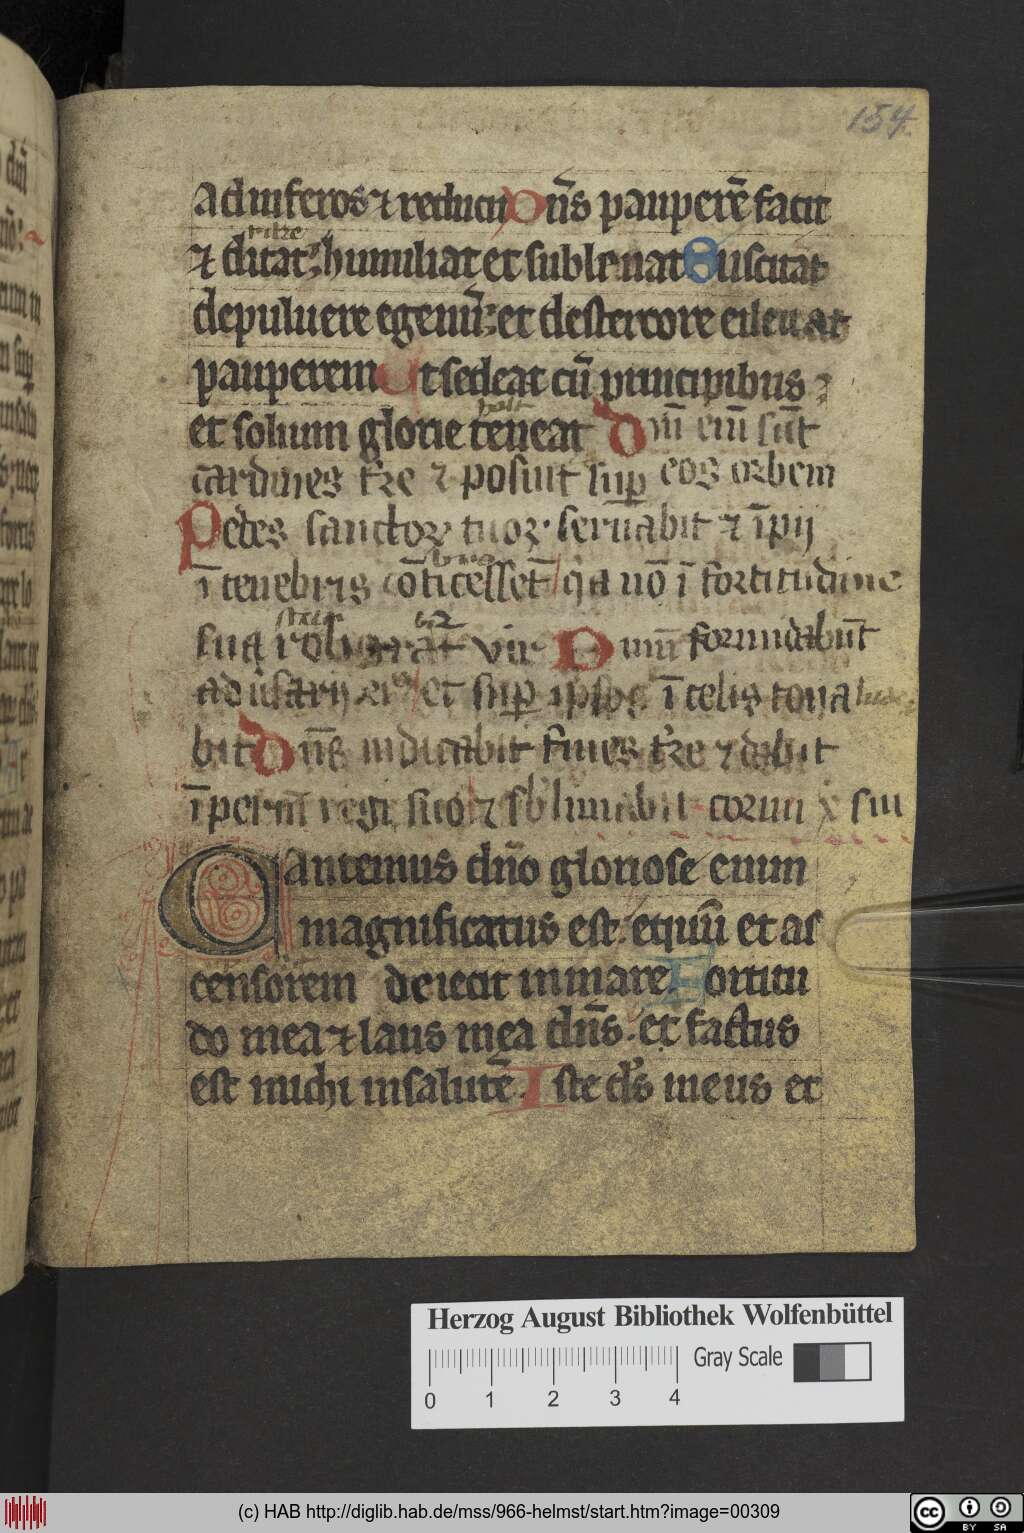 154.
ad inferos ⁊ reducit Dn̄s pauperē facit
⁊ ditat humiliat et subleuat Suscitat
depuluere egenū: et destercore eileuat
pauperem Ut sedeat cū principibus
et solium glorie teneat Dn̄i eni̅ su̅t
cardines tr̄e ⁊ posuit sup̱ eos orbem
Pedes sanctoꝝ tuoꝝ seruabit ⁊ īpij
ī tenebris cōticesset̄ q̇a nō ī fortitudine
sua roborat᷑ vir Dnm̄ formidabūt
adūsarij ei⁹ et sup̱ ipsos ī celis tona
bit Dn̄s iudicabit fines tr̄e ⁊ dabit
īperiū regi suo ⁊ sblimabit cornu x sui
Cantemus dn̄o gloriose enim
magnificatus est: equū et as
censorem deiecit in mare. Fortitu
do mea ⁊ laus mea dn̄s. et factus
est michi insalutē. Iste ds̄ meus et
Herzog August Bibliothek Wolfenbüttel
Gray Scale
0 1 2 3 4
(c) HAB http://diglib.hab.de/mss/966-helmst/start.htm?image=00309
cc BY SA